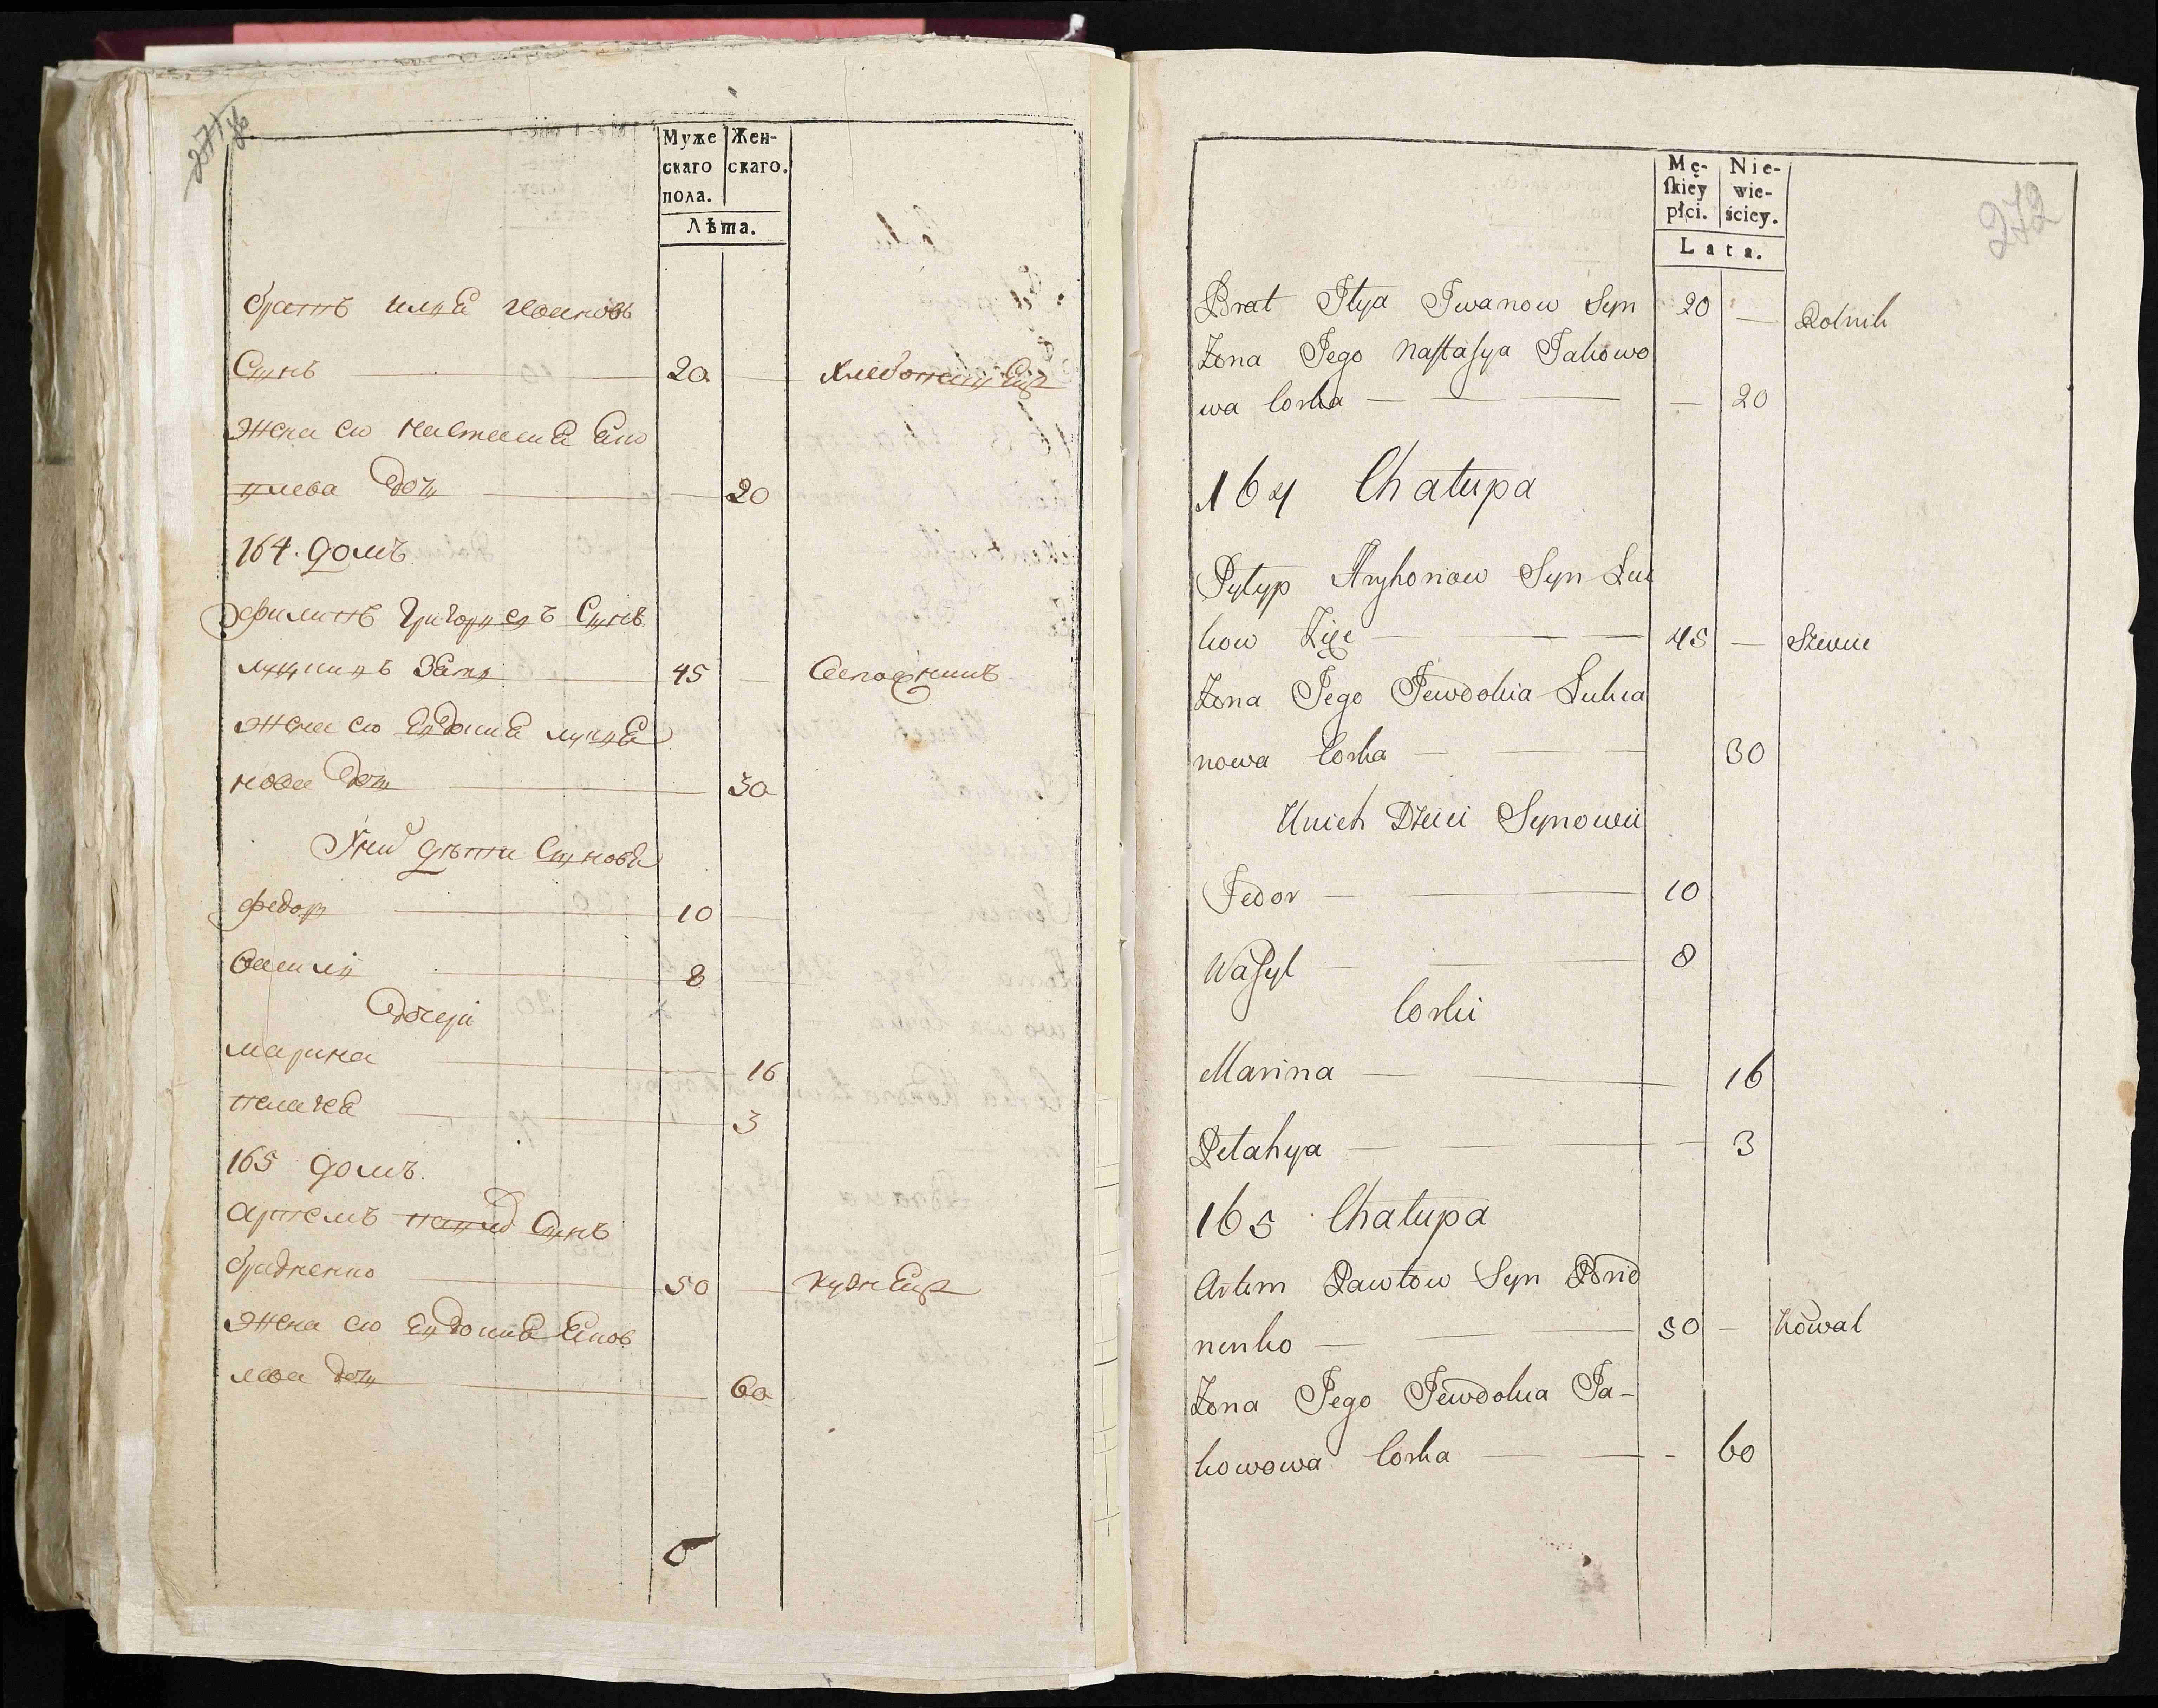 Муже
скаго
пола.
Жен-
скаго.
Лѣта.
братъ илия Иванов
Сынъ — 20 — хлебопашец
жена его настасия яко
влева дочь — 20
164. домъ
филипъ Григориевъ Сынъ
луцикъ зять — 45 — Сапожникъ
жена его Евдокия лукия
нова дочь — 30
У них дѣти Сыновя
федор — 10
василь — 8
дочери
марина — 16
пелагея — 3
165 домъ.
артемъ павлов Сынъ
бридненко — 50 — кузнец
жена его Евдокия Яков
лева дочь — 60
272
Mę-
skiey
płci.
Nie-
wie-
ściey.
Lata.
Brat Ilya Iwanow Syn 20 — Rolnik
Zona Jego Nastasya Jakowo
wa Corka — — 20
164 Chałupa
Pylyp Hryhoriow Syn Luc
kow Zięc — 45 — Szewc
Zona Jego Jewdokia Lukia
nowa Corka — 30
U nich Dzieci Synowii
Fedor — 10
Wasyl — 8
Corki
Marina — 16
Pelahya — 3
165 Chałupa
Artem Pawłow Syn Brid
nenko — 50 — Kowal
Zona Jego Jewdokia Ja-
kowowa Corka — 60